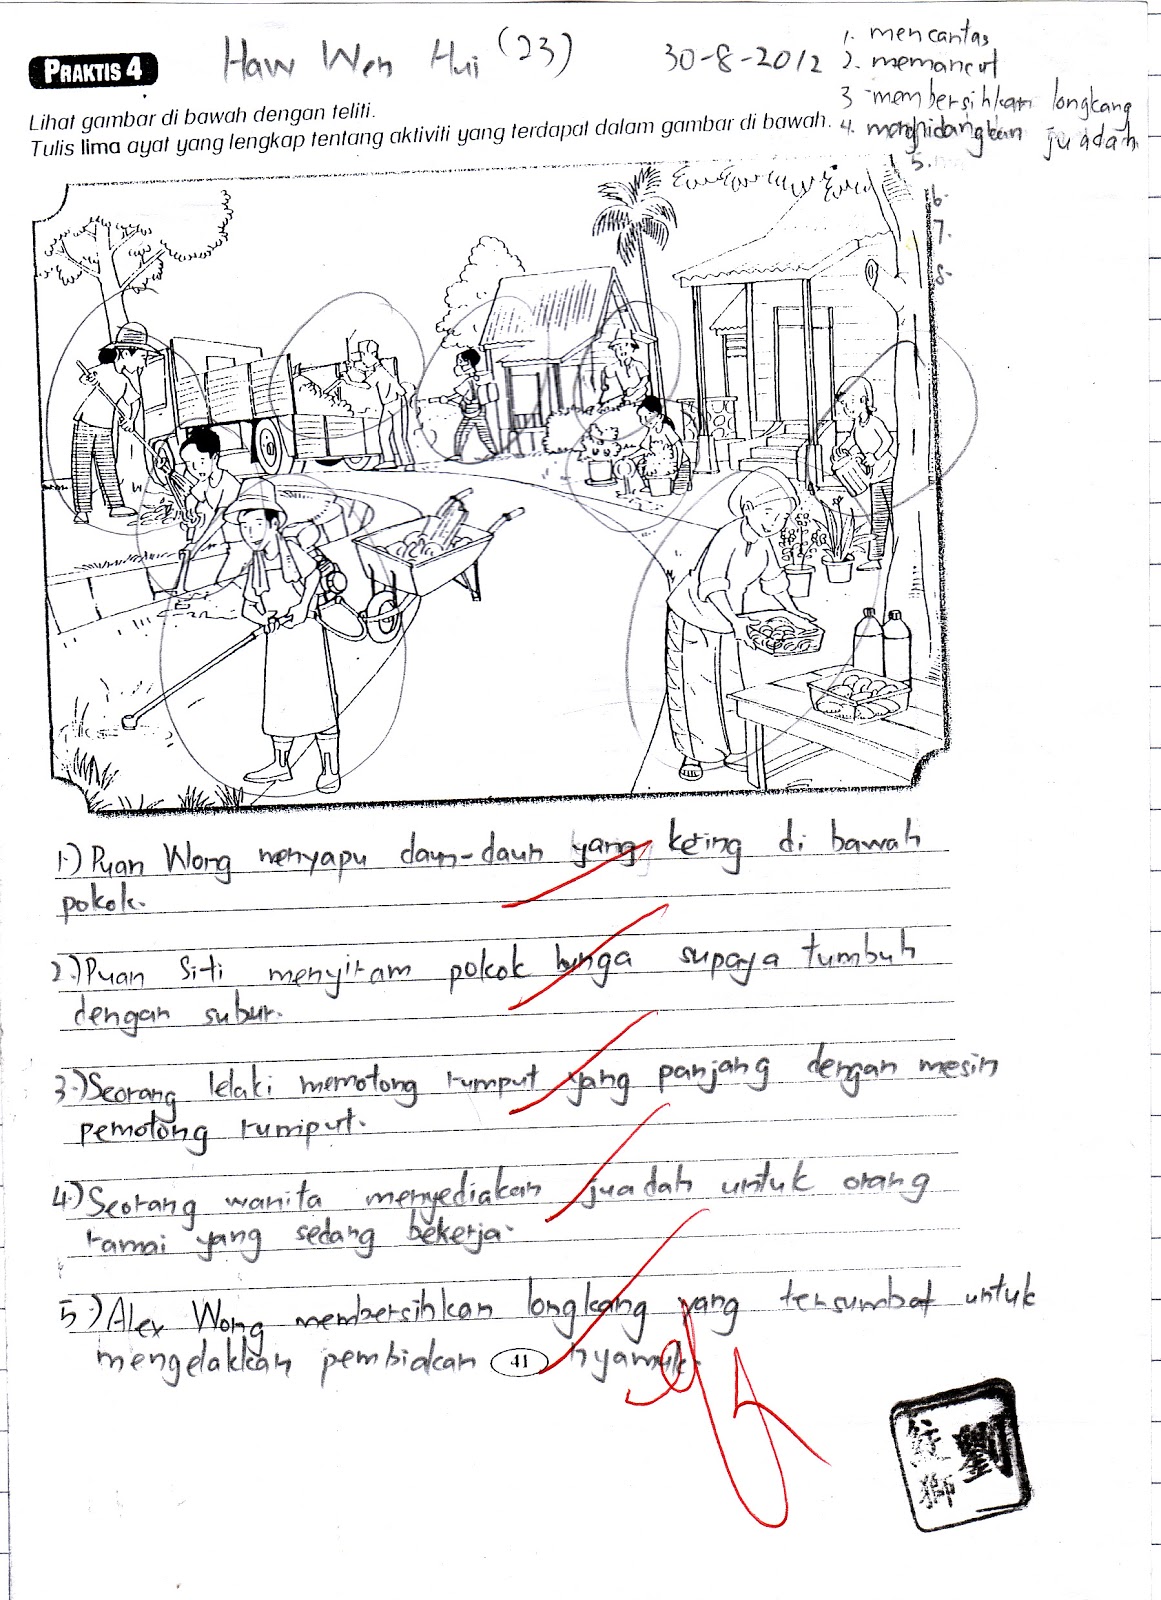 PRAKTIS 4
Haw Wen Hui (23)
30-8-2012
1. mencantas
2. memancut
3 membersihkan longkang
4. menghidangkan juadah
5.
6.
7.
8.
Lihat gambar di bawah dengan teliti.
Tulis lima ayat yang lengkap tentang aktiviti yang terdapat dalam gambar di bawah.
1.) Puan Wong menyapu daun-daun yang kering di bawah
pokok.
2.) Puan Siti menyiram pokok bunga supaya tumbuh
dengan subur.
3.) Seorang lelaki memotong rumput yang panjang dengan mesin
pemotong rumput.
4.) Seorang wanita menyediakan juadah untuk orang
ramai yang sedang bekerja.
5.) Alex Wong membersihkan longkang yang tersumbat untuk
mengelakkan pembiakan nyamuk.
41
劉